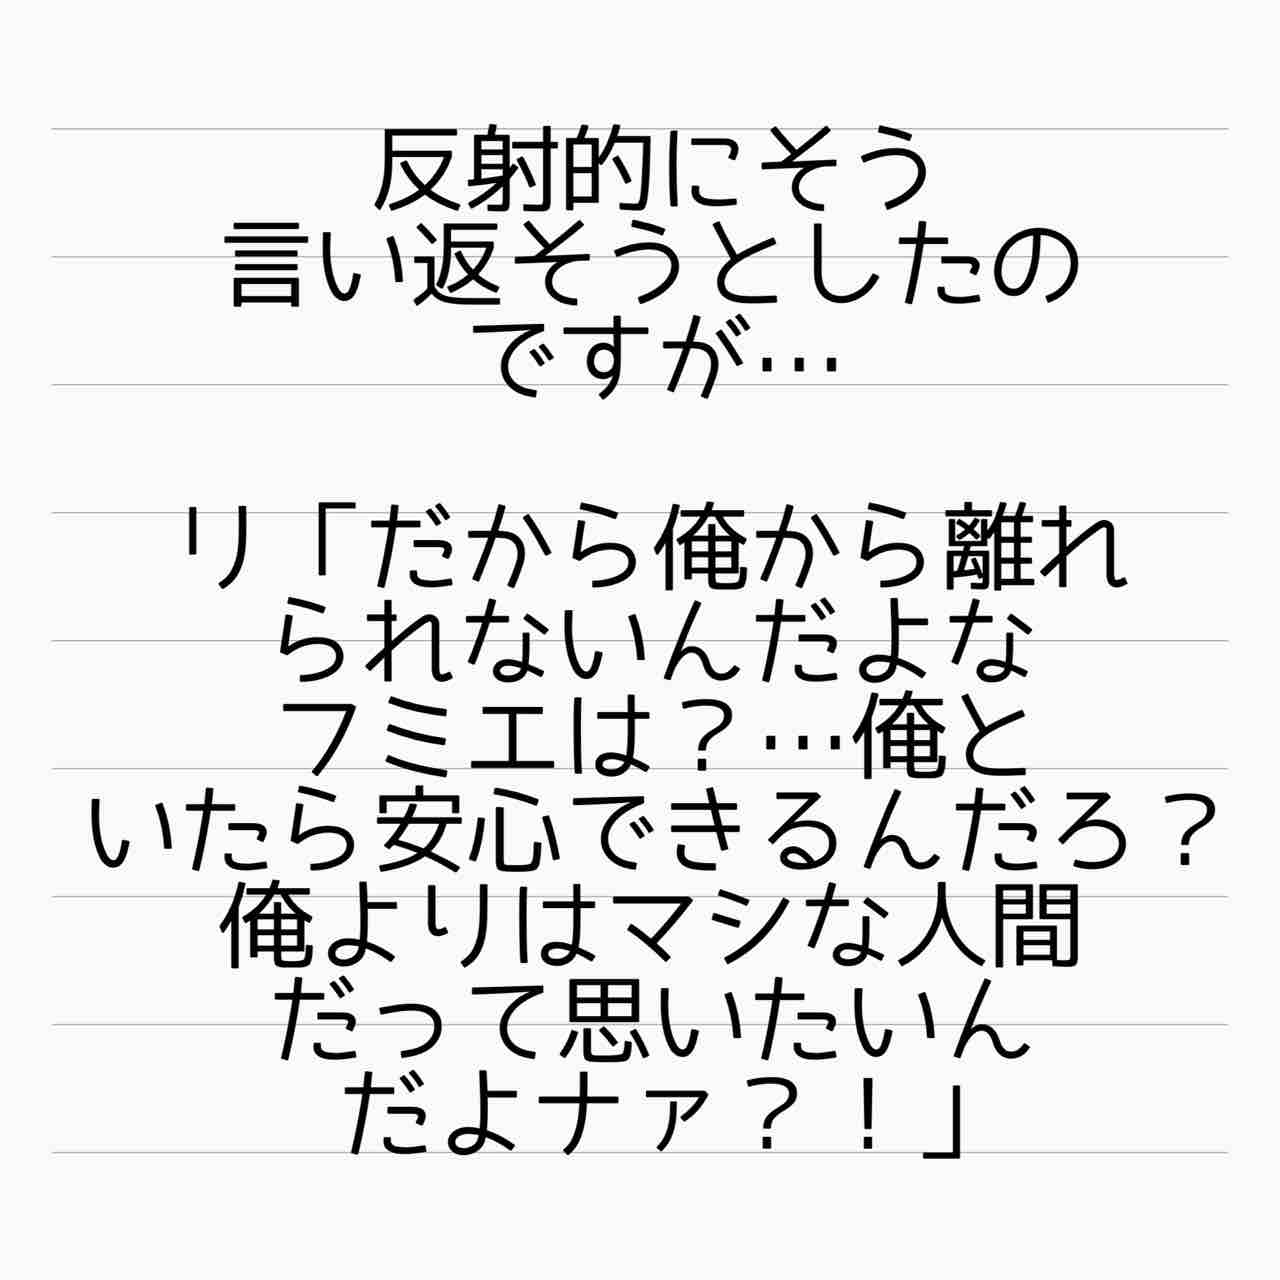 反射的にそう
言い返そうとしたの
ですが…
リ「だから俺から離れ
られないんだよな
フミエは？…俺と
いたら安心できるんだろ？
俺よりはマシな人間
だって思いたいん
だよナァ？！」